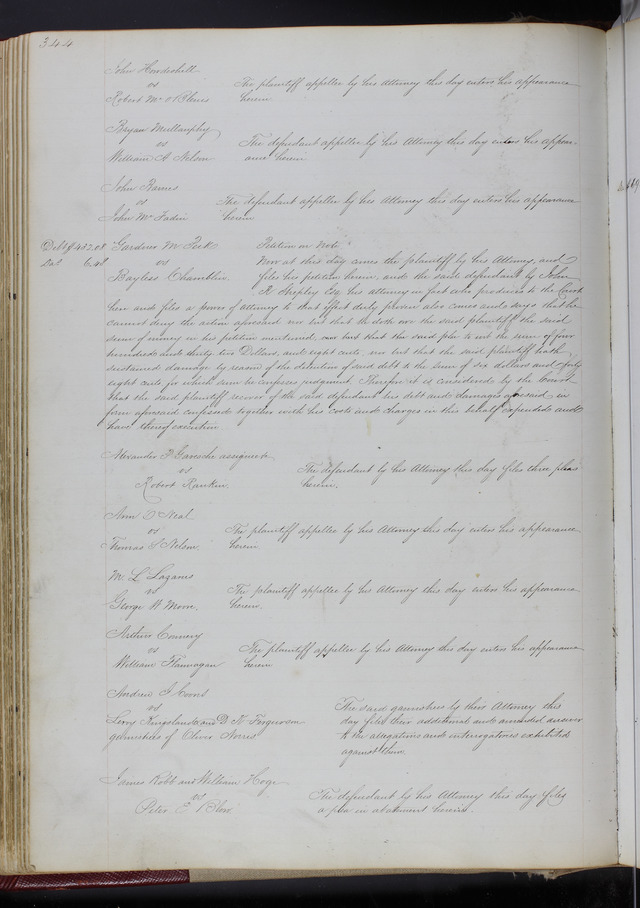 344
John Howdeshell
vs
Robert Mc O Blenis
The plaintiff appellee by his Attorney this day enters his appearance
herein
Bryan Mullanphy
vs
William A Nelson
The defendant appellee by his Attorney this day enters his appear-
ance herein
John Raines
vs
John Mc Fadin
The defendant appellee by his Attorney this day enters his appearance
herein
Debt $432.08
Dat 6.48
Gardner M Peck
vs
Bayless Chamblin
Petition on Note
Now at this day comes the plaintiff by his Attorney, and
files his petition herein, and the said defendant by John
R Shepley Esq his attorney in fact who produces to the Court
here and files a power of attorney to that effect duly proven also comes and says that he
cannot deny the action aforesaid nor but that he doth owe the said plaintiff the said
sum of money in his petition mentioned, nor but that the said is the sum of four
hundred and thirty two Dollars, and eight cents, nor but that the said plaintiff hath
sustained damage by reason of the detention of said debt to the sum of six dollars and forty
eight cents for which sum he confesses judgment. Therefore it is considered by the Court
that the said plaintiff recover of the said defendant his debt and damages aforesaid in
form aforesaid confessed together with his costs and charges in this behalf expended and
have thereof execution
Alexander J Garesche assignee &c
vs
Robert Rankin.
The defendant by his Attorney this day files three pleas
herein.
Ann O Neal
vs
Thomas S Nelson
The plaintiff appellee by his Attorney this day enters his appearance
herein
M. L Lazarus
vs
George W Moore.
The plaintiff appellee by his Attorney this day enters his appearance
herein.
Arthur Connery
vs
William Flannagan
The plaintiff appellee by his Attorney this day enters his appearance
herein
Andrew J Coons
vs
Levy Kingsland and D N Ferguson
garnishees of Oliver Norris
The said garnishees by their Attorney this
day files their additional and amended answer
to the allegations and interrogatories exhibited
against them
James Robb and William Hoge
vs
Peter E Blow.
The defendant by his Attorney this day files
a plea in abatement herein.